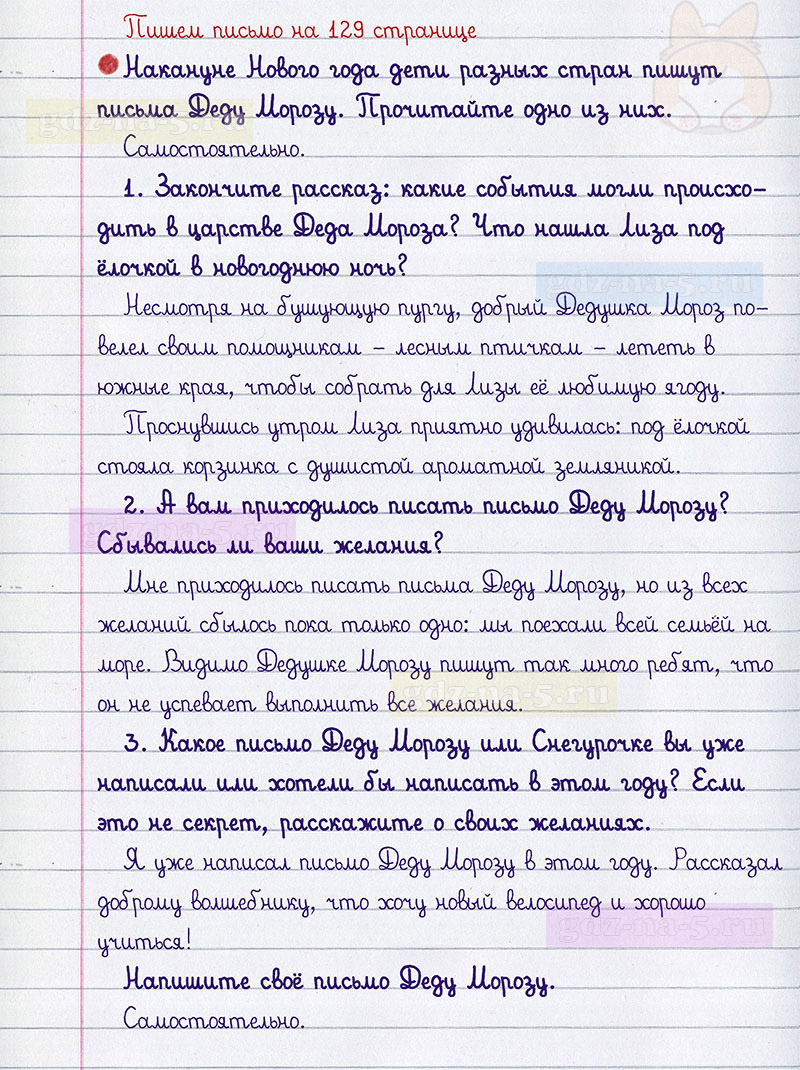 Пишем письмо на 129 странице
Накануне Нового года дети разных стран пишут
письма Деду Морозу. Прочитайте одно из них.
gdz-na-5.ru
Самостоятельно.
1. Закончите рассказ: какие события могли происхо-
дить в царстве Деда Мороза? Что нашла Лиза под
ёлочкой в новогоднюю ночь?
gdz-na-5.ru
Несмотря на бушующую пургу, добрый Дедушка Мороз по-
велел своим помощникам – лесным птичкам – лететь в
южные края, чтобы собрать для Лизы её любимую ягоду.
Проснувшись утром Лиза приятно удивилась: под ёлочкой
стояла корзинка с душистой ароматной земляникой.
2. А вам приходилось писать письмо Деду Морозу?
gdz-na-5.ru
Сбывались ли ваши желания?
Мне приходилось писать письма Деду Морозу, но из всех
желаний сбылось пока только одно: мы поехали всей семьёй на
море. Видимо Дедушке Морозу пишут так много ребят, что
он не успевает выполнить все желания.
gdz-na-5.ru
3. Какое письмо Деду Морозу или Снегурочке вы уже
написали или хотели бы написать в этом году? Если
это не секрет, расскажите о своих желаниях.
Я уже написал письмо Деду Морозу в этом году. Рассказал
доброму волшебнику, что хочу новый велосипед и хорошо
учиться!
gdz-na-5.ru
Напишите своё письмо Деду Морозу.
Самостоятельно.